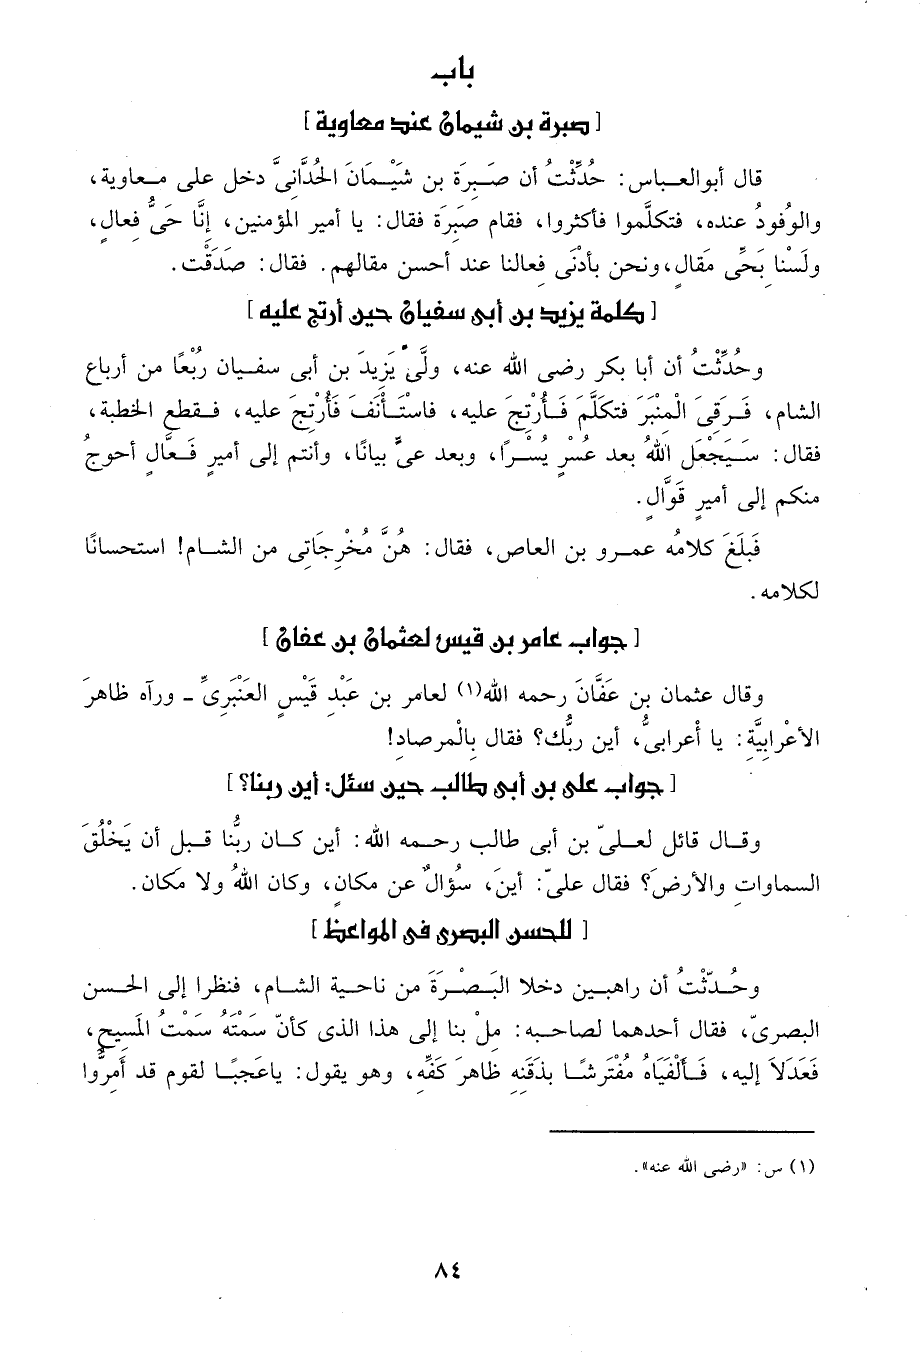 باب
[ صبرة بن شيمان عند معاوية ]
قال أبوالعباس: حُدِّثْتُ أن صَبِرَة بن شَيْمَانَ الحُدَّانىَّ دخل على معاوية،
والوُفودُ عنده، فتكلَّموا فأكثروا، فقام صَبِرَة فقال: يا أمير المؤمنين، إنَّا حَىُّ فعالٍ،
ولَسْنا بَحَىِّ مَقالٍ، ونحن بأدْنَى فعالنا عند أحسن مقالهم. فقال: صدَقْت.
[ كلمة يزيد بن أبى سفيان حين أرتج عليه ]
وحُدِّثْتُ أن أبا بكر رضى الله عنه، ولَّى يَزِيدَ بن أبى سفيان رُبْعًا من أرباع
الشام، فَرقِىَ الْمِنْبَرَ فتكلَّمَ فَأُرْتِجَ عليه، فاسْتَأْنَفَ فَأُرْتِجَ عليه، فقطع الخطبة،
فقال: سَيَجْعَل اللهُ بعد عسْرٍ يُسْرًا، وبعد عىٍّ بيانًا، وأنتم إلى أميرٍ فَعَّالٍ أحوجُ
منكم إلى أميرٍ قَوَّالٍ.
فَبلَغَ كلامُه عمرو بن العاص، فقال: هُنَّ مُخْرِجَاتِى من الشام! استحسانًا
لكلامه.
[ جواب عامر بن قيس لعثمان بن عفان ]
وقال عثمان بن عَفَّانَ رحمه الله(١) لعامر بن عَبْدِ قَيْسٍ العَنْبَرِىِّ ـ ورآه ظاهرَ
الأعْرابِيَّةِ: يا أعرابىُّ، أين ربُّك؟ فقال بِالْمرصادِ!
[ جواب على بن أبى طالب حين سئل: أين ربنا؟ ]
وقال قائل لعلىّ بن أبى طالب رحمه الله: أين كان ربُّنا قبل أن يَخْلُقَ
السماواتِ والأرضَ؟ فقال علىّ: أينَ، سُؤالٌ عن مكانٍ، وكان اللهُ ولا مكان.
[ للحسن البصرى فى المواعظ ]
وحُدّثْتُ أن راهبين دخلا البَصْرَةَ من ناحية الشام، فنظرا إلى الحسن
البصرىّ، فقال أحدهما لصاحبه: مِلْ بنا إلى هذا الذى كأنّ سَمْتَهُ سَمْتُ المَسِيحِ،
فَعَدَلاَ إليه، فَأَلْفَيَاهُ مُفْتَرِشًا بذَقَنِهِ ظاهرَ كَفِّهِ، وهو يقول: ياعَجبًا لقوم قد أُمِرُّوا
(١) س: «رضى الله عنه».
٨٤